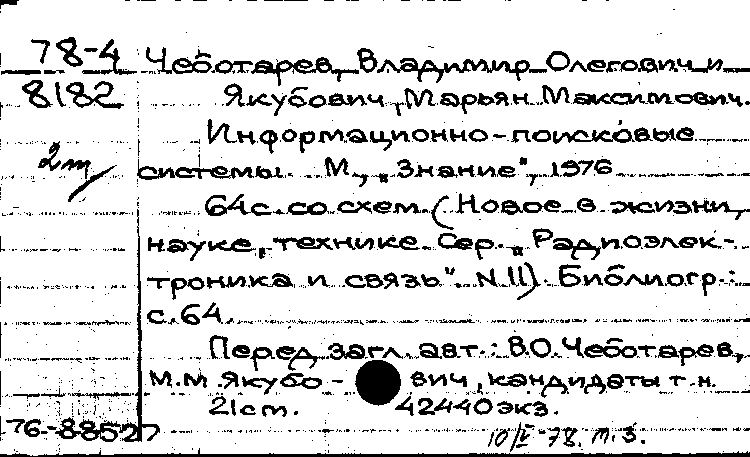 78-4 Чеботарев, Владимир Олегович и
8182 Якубович, Марьян Максимович.
Информационно-поисковые
2т системы. М., „Знание", 1976
64с. со схем. (Новое в жизни,
науке, технике. Сер. „Радиоэлек-
троника и связь". N 11). Библиогр.:
с. 64.
Перед загл. авт.: В.О. Чеботарев,
М.М. Якубо- вич, кандидаты т.н.
21 cm. 42440 экз.
76-88527 10/V-78. т.з.